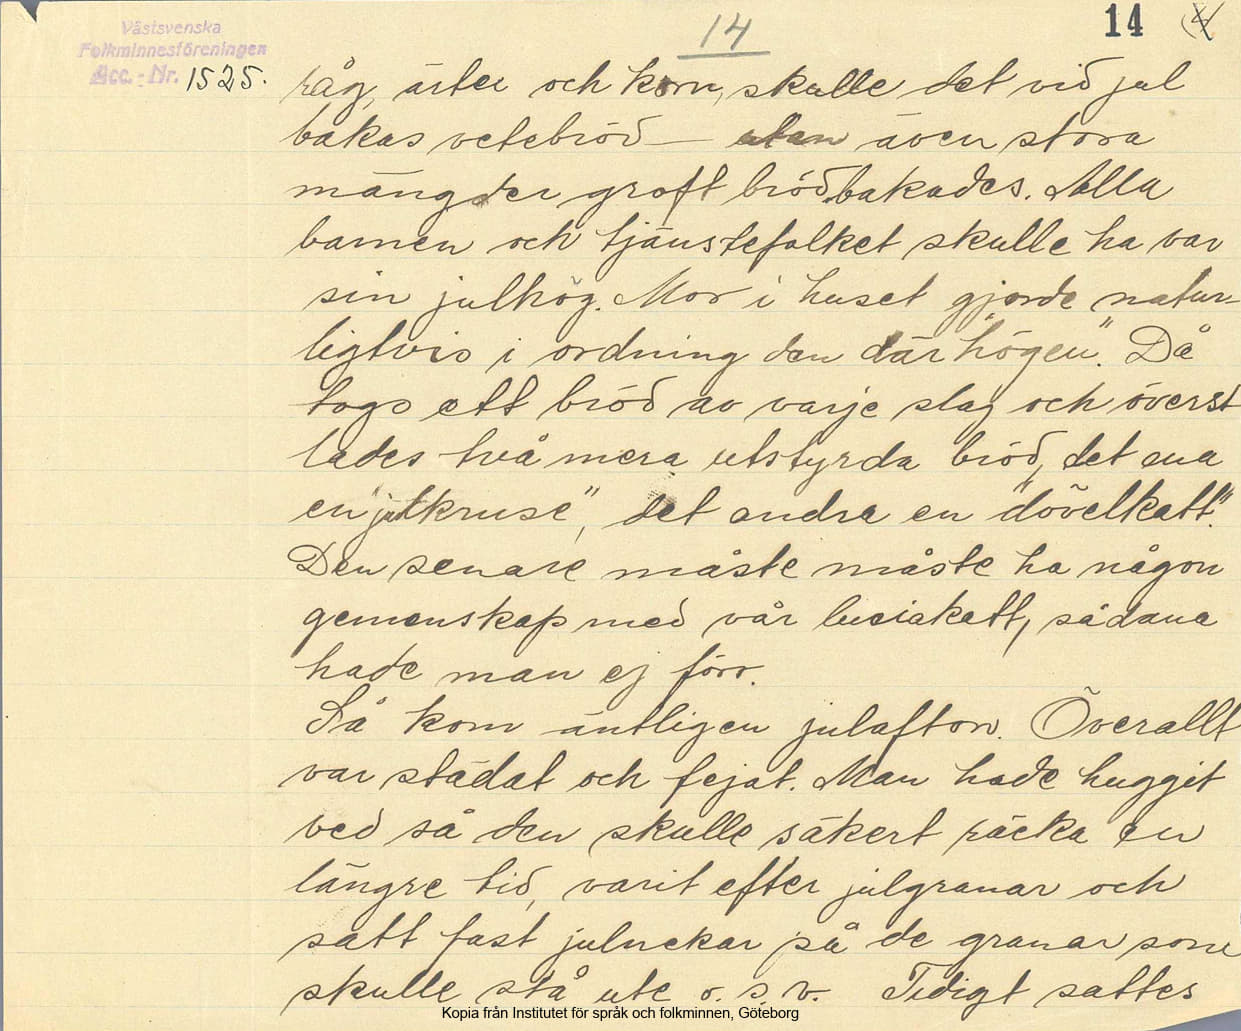 14
14
Västsvenska
Folkminnesföreningen
Acc.-Nr. 1525.
råg, ärter och korn, skulle det vid jul
bakas vetebröd — utan även stora
mängder groft bröd bakades. Alla
barnen och tjänstefolket skulle ha var
sin julhög. Mor i huset gjorde natur-
ligtvis i ordning den där "högen". Då
togs ett bröd av varje slag och överst
lades två mera utstyrda bröd, det ena
en "julkruse", det andra en "dövelkatt".
Den senare måste måste ha någon
gemenskap med vår luciakatt, sådana
hade man ej förr.
Så kom äntligen julafton. Överallt
var städat och fejat. Man hade huggit
ved så den skulle säkert räcka en
längre tid, varit efter julgranar och
satt fast julnekar på de granar som
skulle stå ute o. s. v. Tidigt sattes
Kopia från Institutet för språk och folkminnen, Göteborg